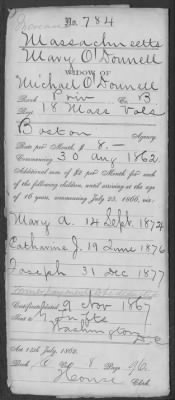 No. 784
Massachusetts
Mary O'Donnell
WIDOW OF
Michael O'Donnell
Rank Priv Co. B
Regt. 18 Mass Vols
Boston Agency
Rate per Month $ 8.—
Commencing 30 Aug 1862
Additional sum of $2 per Month for each
of the following children, until arriving at the age
of 16 years, commencing July 25, 1866, viz:
Mary A. 14 Sept. 1874
Catharine J. 19 June 1876
Joseph 31 Dec 1877
Certificate dated 9 Nov 1867
Sent to
Washington
D.C.
Act 14th July, 1862.
Book Vol 8 Page
House Clerk.